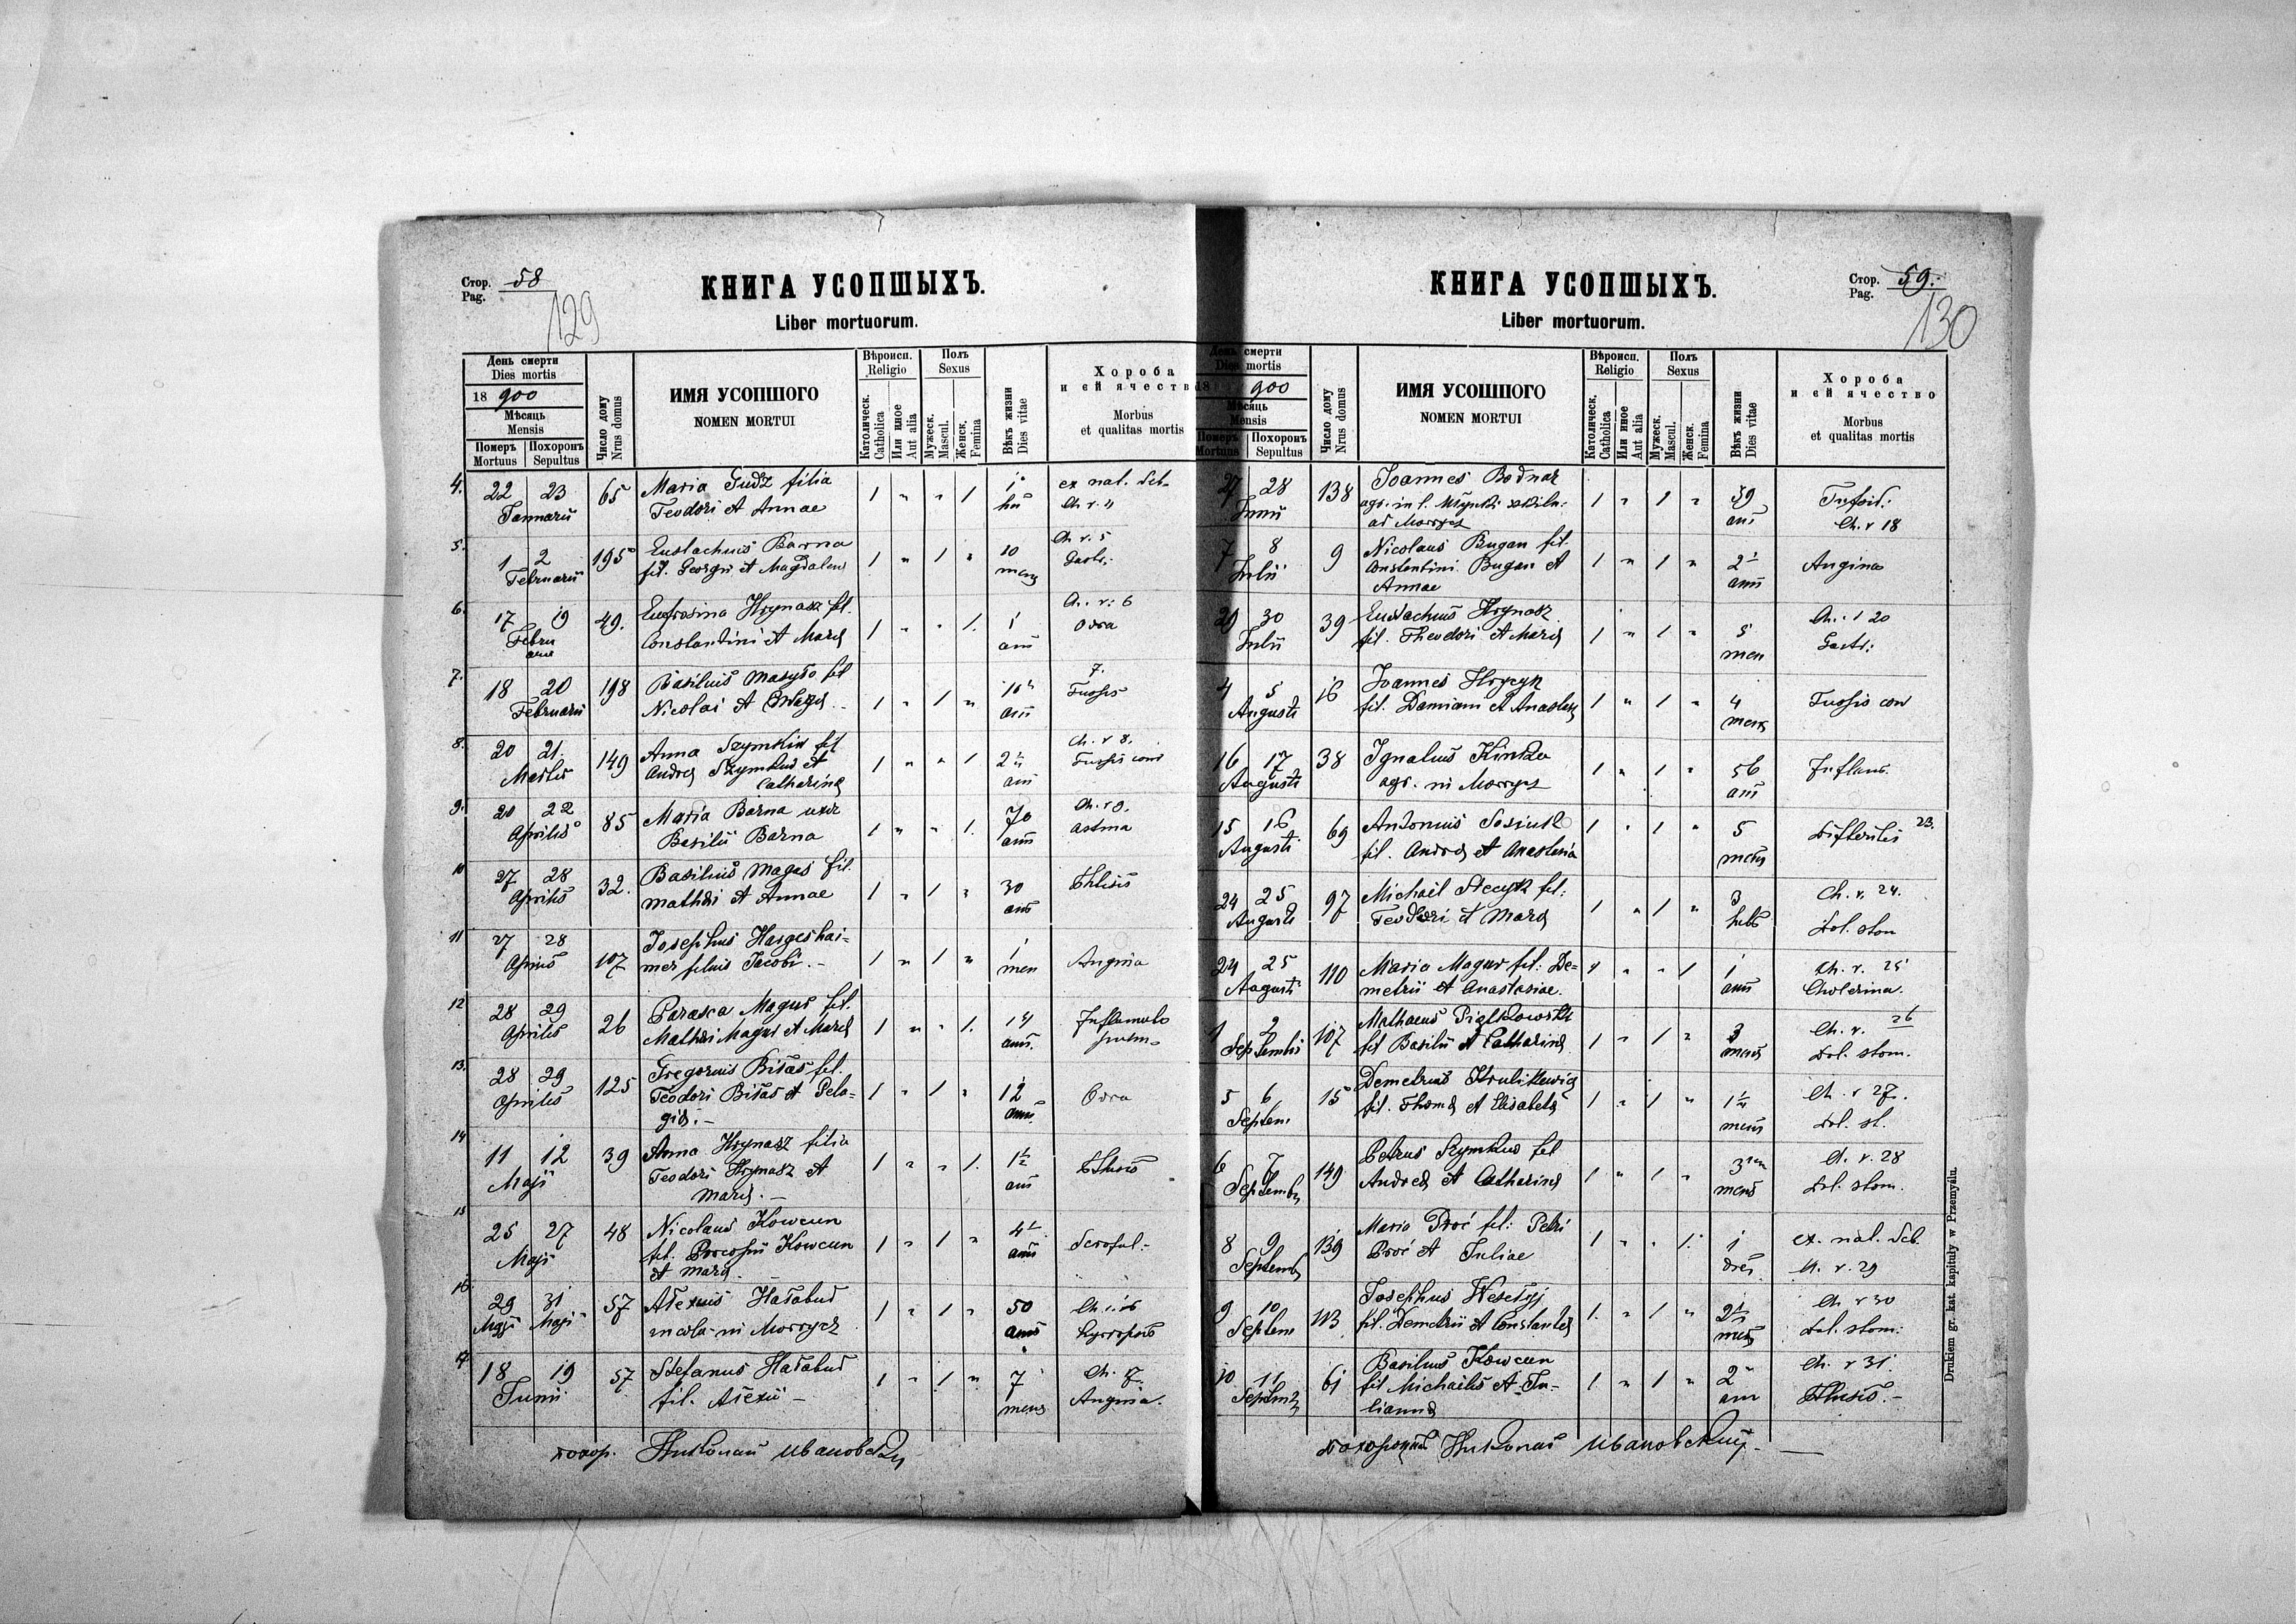 Стор. 58
Pag.
129
КНИГА УСОПШЫХЪ.
Liber mortuorum.
День смерти
Dies mortis
18 900
Мѣсяць
Mensis
Померъ Похоронъ
Mortuus Sepultus
Число дому
Nrus domus
ИМЯ УСОПШОГО
NOMEN MORTUI
Вѣроисп.
Religio
Католическ.
Catholica
Или иное
Aut alia
Полъ
Sexus
Мужеск.
Mascul.
Женск.
Femina
Вѣкъ жизни
Dies vitae
Хороба
и ей ячество
Morbus
et qualitas mortis
4. 22 23 65 Maria Gudz filia 1 " " 1 ex nat. deb.
Januarii Teodori et Annae
5. 1 2 195 Eustachius Barna 1 " 1 " 10 Ch. r. 5
Februarii fil. Georgii et Magdalena mens Gastr.
6. 17 19 49. Eufrosina Hrynasz fil. 1 " " 1. 1 Ch. r. 6
Februarii Constantini et Maria ann Odra
7. 18 20 198 Basilius Masylo fil 1 " 1 " 7.
Februarii Nicolai et ann Tussis
8. 20 21. 149 Anna Szymkiw fil 1 " " 1 2 Ch. r 8.
Martii Andrea Szymkiw et ann Tussis conv
Catharina
9. 20 22 85 Maria Barna uxor 1 " " 1. 70 Ch. r 9.
Aprilis Basilii Barna anni astma
10 27 28 32. Basilius Magas fil. 1 " 1 " 30 Phtisis
Aprilis Mathei et Annae ann
11 27 28 107 Josephus Hargeshai= 1 " 1 " 1 Angina
Aprilis mer filius Jacobi. – men
12 28 29 26 Parasca Magus fil. 1 " " 1. 14
Aprilis Mathei Magus et Maria anni.
13. 28 29 125 Gregorius Bilas fil. 1 " 1 " 12 Odra
Aprilis Teodori Bilas et Pela=
gia. –
14 11 12 39 Anna Hrynasz filia 1 " " 1. 1½ Phtisis
Maji Teodori Hrynasz et ann
Maria. –
15 25 27 48 Nicolaus Kowcun 1 " 1 " 4 Scroful. –
Maji fil. Procopii Kowcun anni
et Maria
16. 29 31 57 Alexius Halabud 1 " 1 " 50
Maji Maji incola in Morrycz anni
17. 18 19 57 Stefanus Halabud 1 " 1 " 7 Ch. 17.
Junii fil. Alexii – mens Angina.
похор. Николай Ивановскій
Стор. 59.
Pag.
130
КНИГА УСОПШЫХЪ.
Liber mortuorum.
День смерти
Dies mortis
18 900
Мѣсяць
Mensis
Померъ Похоронъ
Mortuus Sepultus
Число дому
Nrus domus
ИМЯ УСОПШОГО
NOMEN MORTUI
Вѣроисп.
Religio
Католическ.
Catholica
Или иное
Aut alia
Полъ
Sexus
Мужеск.
Mascul.
Женск.
Femina
Вѣкъ жизни
Dies vitae
Хороба
и ей ячество
Morbus
et qualitas mortis
27 28 138 Joannes Bodnar 1 " 1 " 39 Tyfoid.
Junii agr. in ann Ch. r 18
7 8 9 Nicolaus Bugan fil. 1 " 1 " 2 Angina
Julii Constantini Bugan et anni
Annae
29 30 39 Eustachius Hrynasz 1 " 1 " 5 Ch. r 20
Julii fil. Theodori et Maria men Gastr:
4 5 16 Joannes Hrycyk 1 " 1 " 4 Tussis con
Augusti fil. Damiani et Anastasia mens
16 17 38 Ignatius Kinka 1 " 1 " 56 Inflam.
Augusti agr. in Morrycz ann
15 16 69 Antonius Sosiuk 1 " 1 " 5 Difteritis 23.
Augusti fil. Andrea et Anastasia mens
24 25 97 Michael Stecyk fil: 1 " 1 " 3 Ch. r. 24.
Augusti Teodori et Maria hebd Dol. stom
24 25 110 Maria Magur fil: De= 1 " " 1 1 Ch. r. 25
Augusti metrii et Anastasiae. anni Cholerina.
1 2 107 Mathaeus Piątkowski 1 " 1 " 3 Ch. r. 26
Septembris fil Basilii et Catharina mens Dol. stom.
5 6 15 Demetrius Krulikewicz 1 " 1 " 1½ Ch. r 27.
Septem fil. Thoma et Elisabeta mens Dol. st.
6 7 149 Petrus Szymkiw fil 1 " 1 " 3 Ch. r. 28
Septembris Andrea et Catharina mens Dol. stom.
8 9 139 Maria Proć fil: Petri 1 " " 1. 1 ex. nat. deb
Septemb Proć et Juliae dies Ch. r. 29
9 10 113 Josephus Wesełyj 1. " 1 " 2½ Ch. r 30
Septem fil. Demetrii et Constantia mens Dol. stom:
10 11 61 Basilius Kowcun 1. " 1 " 2 Ch. r 31.
Septemb fil Michaelis et Ju- ann Phtisis. –
lianna
похоронилъ Николай Ивановскій. –
Drukiem gr. kat. kapituły w Przemyślu.